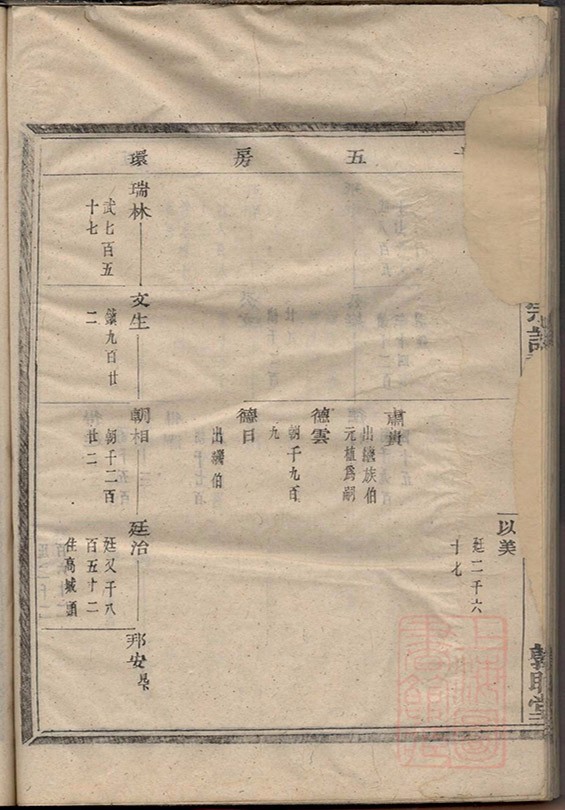 五房環
以美
廷二千六
十七
肅貴
出繼族伯
元植爲嗣
德雲
朝千九百
九
德日
出繼伯
瑞林
武七百五
十七
文生
九百廿
二
朝相
朝千二百
廿二
廷治
廷又千八
百五十二
住高城頭
邦安
宗譜